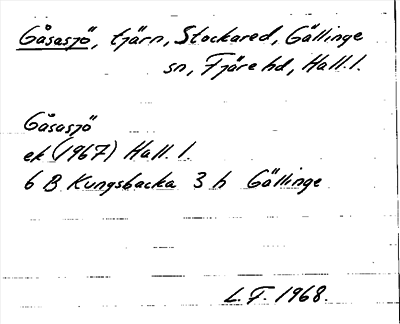 Gåsasjö, tjärn, Stockared, Gällinge
sn, Fjäre hd, Hall. l.
Gåsasjö
ek (1967) Hall. l.
6 B Kungsbacka 3 h Gällinge
L. F. 1968.